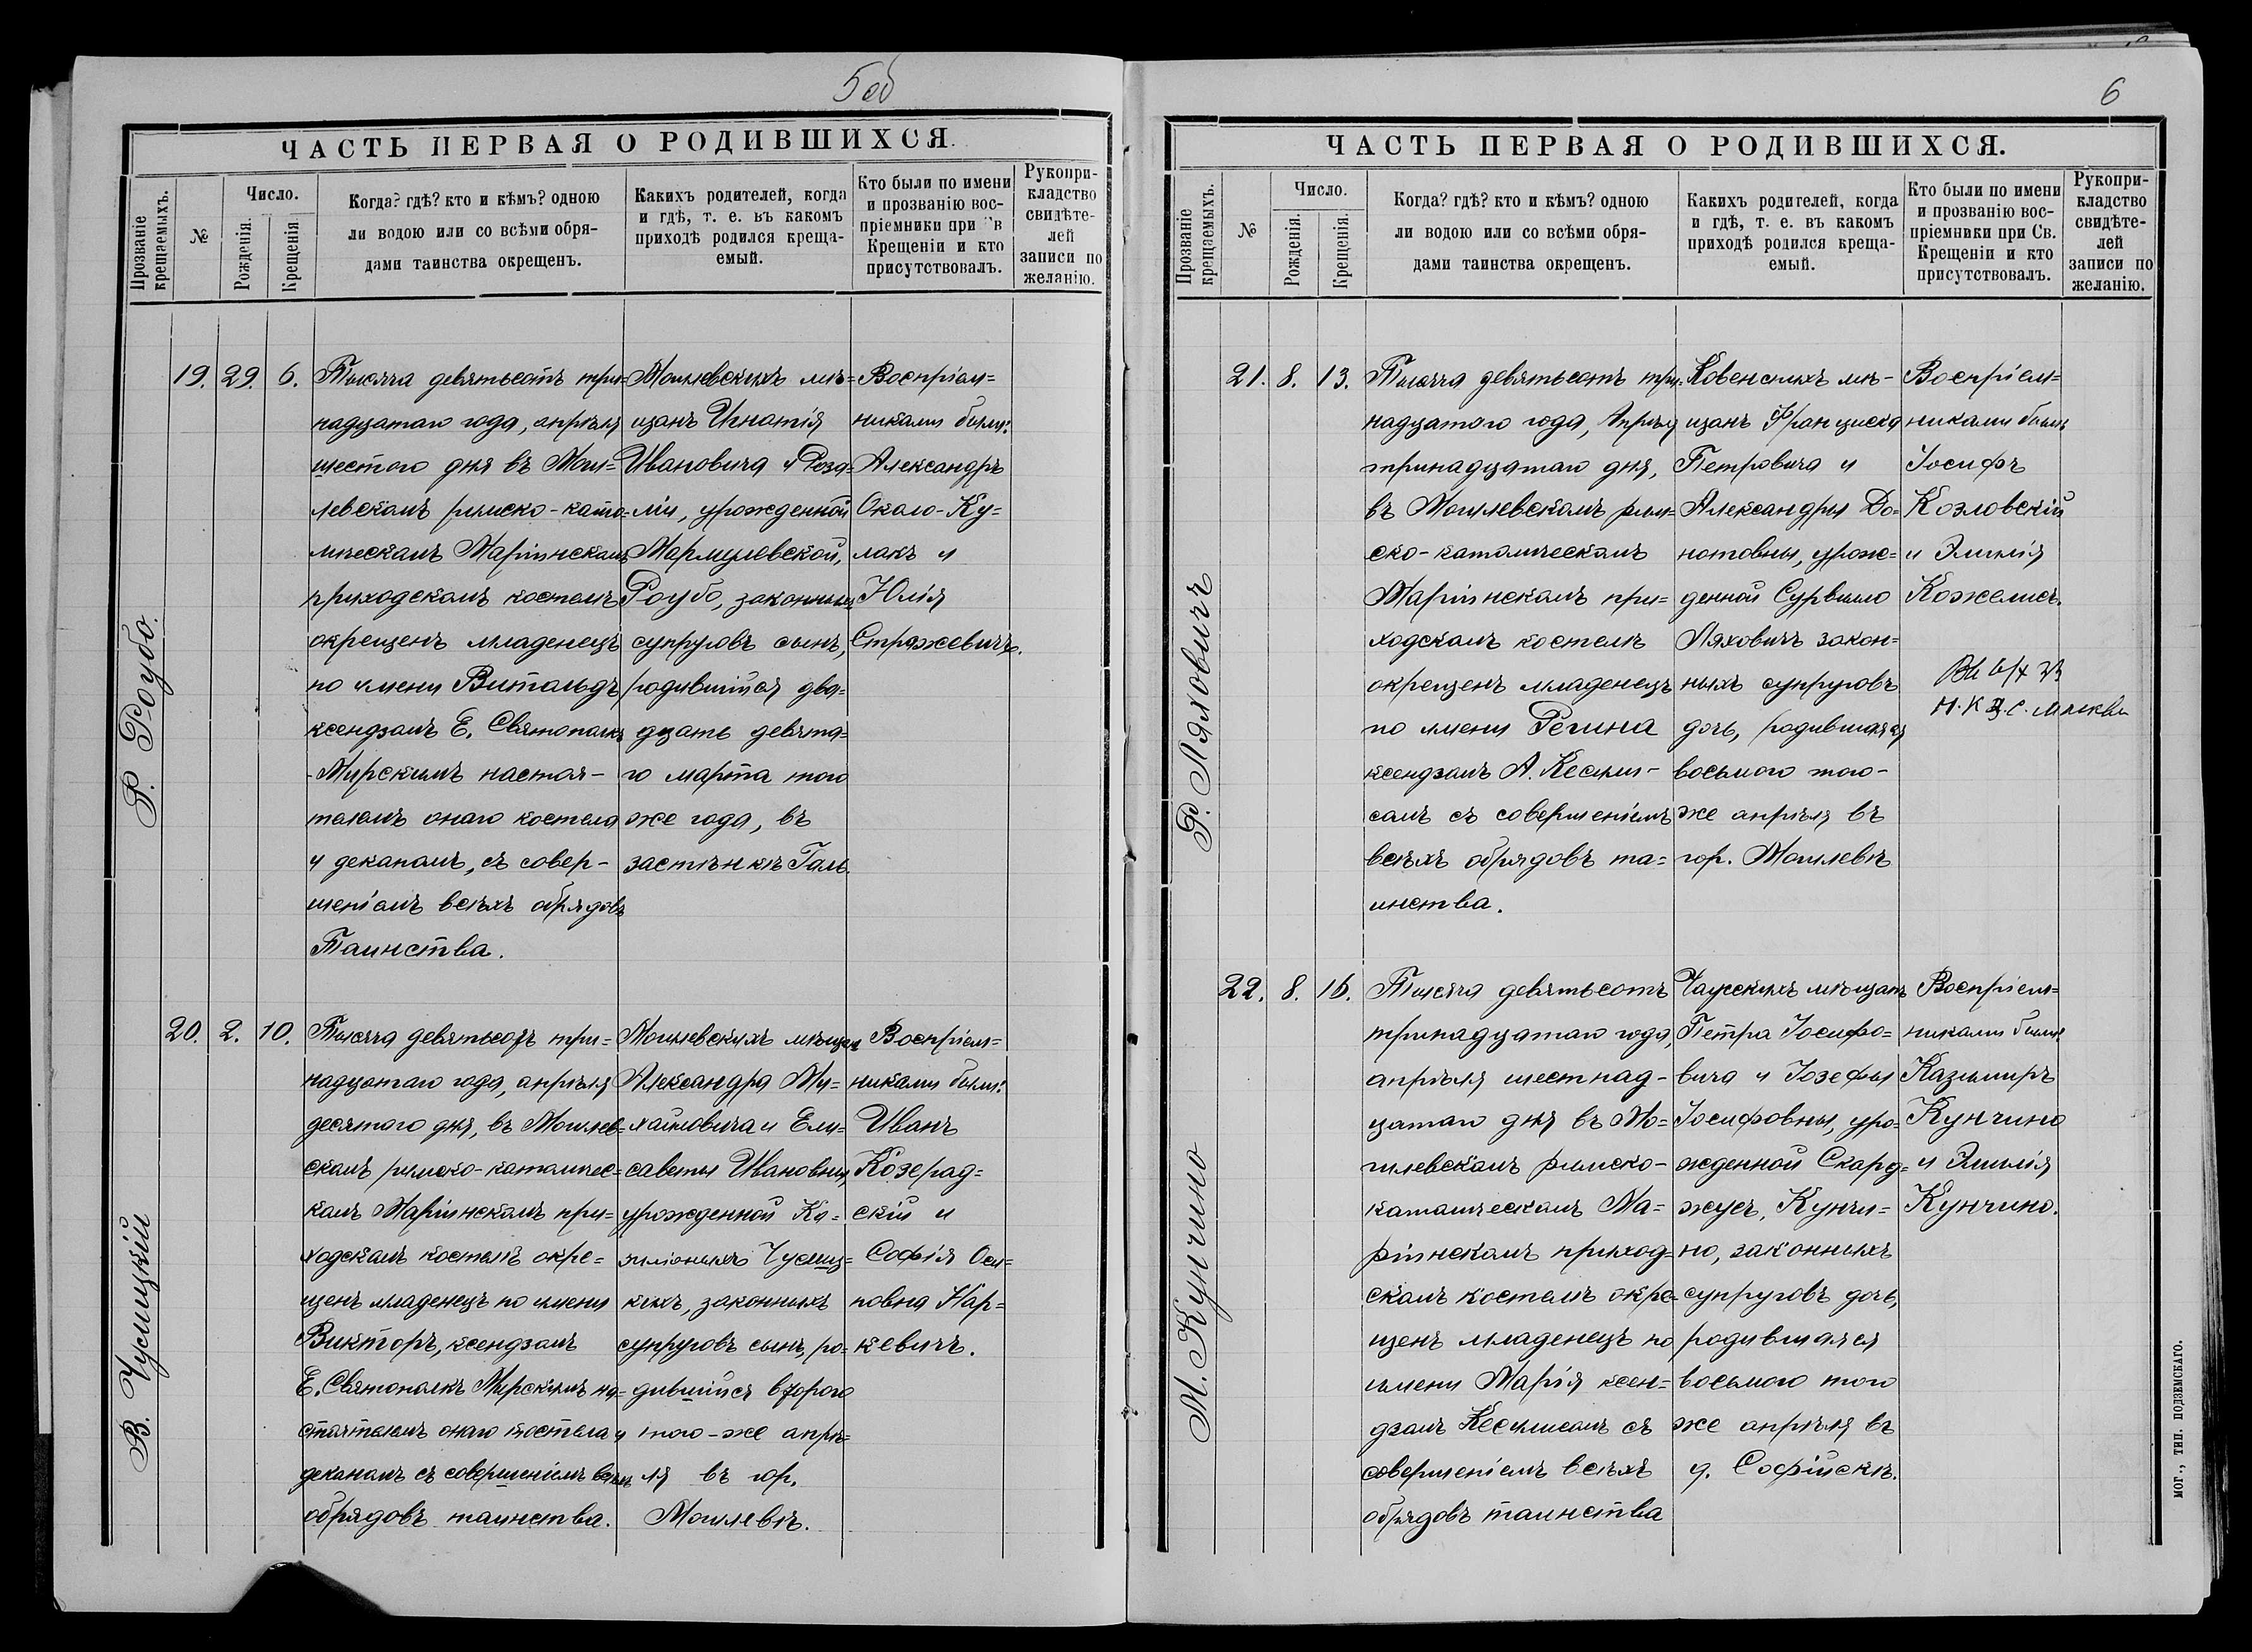 5 об
ЧАСТЬ ПЕРВАЯ О РОДИВШИХСЯ.
Прозваніе крещаемыхъ.
№
Число.
Рожденія.
Крещенія
Когда? гдѣ? кто и кѣмъ? одною
ли водою или со всѣми обря-
дами таинства окрещенъ.
Какихъ родителей, когда
и гдѣ, т. е. въ какомъ
приходѣ родился креща-
емый.
Кто были по имени
и прозванію вос-
пріемники при в
Крещеніи и кто
присутствовалъ.
Рукопри-
кладство
свидѣте-
лей
записи по
желанію.
Р. Роубо.
19. 29. 6.
Тысяча девятьсотъ три-
надцатаго года, апрѣля
шестого дня въ Моги-
левскомъ римско-като-
лическомъ Маріинскомъ
приходскомъ костелѣ
окрещенъ младенецъ
по имени Витольдъ
ксендзомъ Е. Святополкъ
-Мирскимъ настоя-
телемъ онаго костела
и деканомъ, съ совер-
шеніемъ всѣхъ обрядовъ
Таинства.
Могилевскихъ мѣ-
щанъ Игнатія
Ивановича и Роза-
ліи, урожденной
Мармулевской,
Роубо, законныхъ
супруговъ сынъ,
родившійся два-
дцать девята-
го марта того
же года, въ
застѣнкѣ Галь.
Воспріем-
никами были:
Александръ
Около-Ку-
лакъ и
Юлія
Стражевичъ.
В. Чуслицкій
20. 2. 10.
Тысяча девятьсотъ три-
надцатаго года, апрѣля
десятого дня, въ Могилев-
скомъ римско-католичес-
комъ Маріинскомъ при-
ходскомъ костелѣ окре-
щенъ младенецъ по имени
Викторъ, ксендзомъ
Е. Святополкъ Мирскимъ на-
стоятелемъ онаго костела и
деканомъ съ совершеніемъ всѣхъ
обрядовъ таинства.
Могилевскихъ мѣщанъ
Александра Ми-
хайловича и Ели-
саветы Ивановны,
урожденной
Чуслиц-
кихъ, законныхъ
супруговъ сынъ, ро-
дившійся второго
того-же апрѣ-
ля въ гор.
Могилевѣ.
Воспріем-
никами были:
Иванъ
Козерад-
скій и
Софія Оси-
повна Нар-
кевичъ.
6
ЧАСТЬ ПЕРВАЯ О РОДИВШИХСЯ.
Прозваніе крещаемыхъ.
№
Число.
Рожденія.
Крещенія.
Когда? гдѣ? кто и кѣмъ? одною
ли водою или со всѣми обря-
дами таинства окрещенъ.
Какихъ родителей, когда
и гдѣ, т. е. въ какомъ
приходѣ родился креща-
емый.
Кто были по имени
и прозванію вос-
пріемники при Св.
Крещеніи и кто
присутствовалъ.
Рукопри-
кладство
свидѣте-
лей
записи по
желанію.
Р. Ляховичъ
21. 8. 13.
Тысяча девятьсотъ три-
надцатого года, Апрѣля
тринадцатаго дня,
въ Могилевскомъ рим-
ско-католическомъ
Маріинскомъ при-
ходскомъ костелѣ
окрещенъ младенецъ
по имени Регина
ксендзомъ А. Кесми-
сомъ съ совершеніемъ
всѣхъ обрядовъ та-
инства.
Ковенскихъ мѣ-
щанъ Франциска
Петровича и
Александры До-
нотовны, урож-
денной Сурвилло
Ляховичъ закон-
ныхъ супруговъ
дочь, родившаяся
восьмого того-
же апрѣля въ
гор. Могилевѣ
Воспріем-
никами были
Іосифъ
Козловскій
и Эмилія
Кожелисъ.
М. Кунчино
22. 8. 16.
Тысяча девятьсотъ
тринадцатаго года,
апрѣля шестнад-
цатаго дня въ Мо-
гилевскомъ римско-
католическомъ Ма-
ріинскомъ приход-
скомъ костелѣ окре-
щенъ младенецъ по
имени Марія ксен-
дзомъ Кесмисомъ съ
совершеніемъ всѣхъ
обрядовъ таинства
Чаусскихъ мѣщанъ
Петра Іосифо-
вича и Іозефы
Іосифовны, уро-
жденной Скард-
жусъ, Кунчи-
но, законныхъ
супруговъ дочь,
родившаяся
восьмого того
же апрѣля въ
д. Софійскѣ.
Воспріем-
никами были:
Казимиръ
Кунчино
и Эмилія
Кунчино.
МОГ., ТИП. ПОДЗЕМСКАГО.